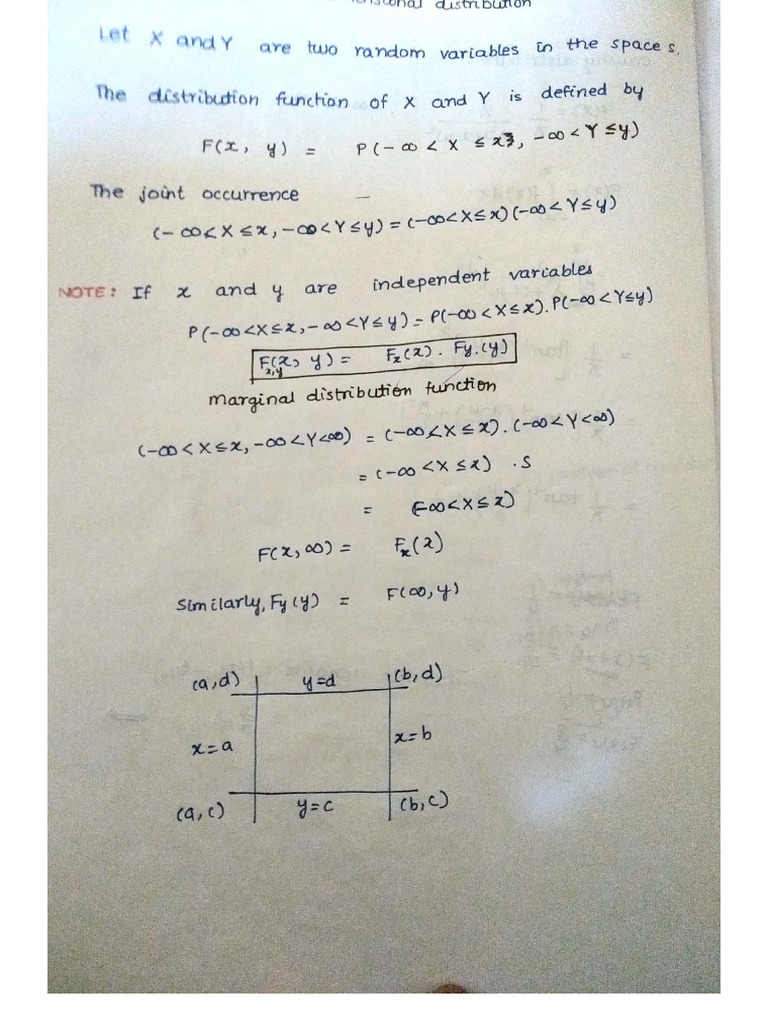 distribution
Let X and Y are two random variables in the space s.
The distribution function of X and Y is defined by
F(x, y) = P(-∞ < X ≤ x, -∞ < Y ≤ y)
The joint occurrence
(-∞ < X ≤ x, -∞ < Y ≤ y) = (-∞ < X ≤ x) (-∞ < Y ≤ y)
NOTE: If x and y are independent variables
P(-∞ < X ≤ x, -∞ < Y ≤ y) = P(-∞ < X ≤ x). P(-∞ < Y ≤ y)
F(x, y) = Fx(x) . Fy.(y)
x,y
Marginal distribution function
(-∞ < X ≤ x, -∞ < Y < ∞) = (-∞ < X ≤ x) . (-∞ < Y < ∞)
= (-∞ < X ≤ x) . S
= (-∞ < X ≤ x)
F(x, ∞) = Fx(x)
Similarly, Fy(y) = F(∞, y)
(a,d) y=d (b,d)
x=a x=b
(a,c) y=c (b,c)